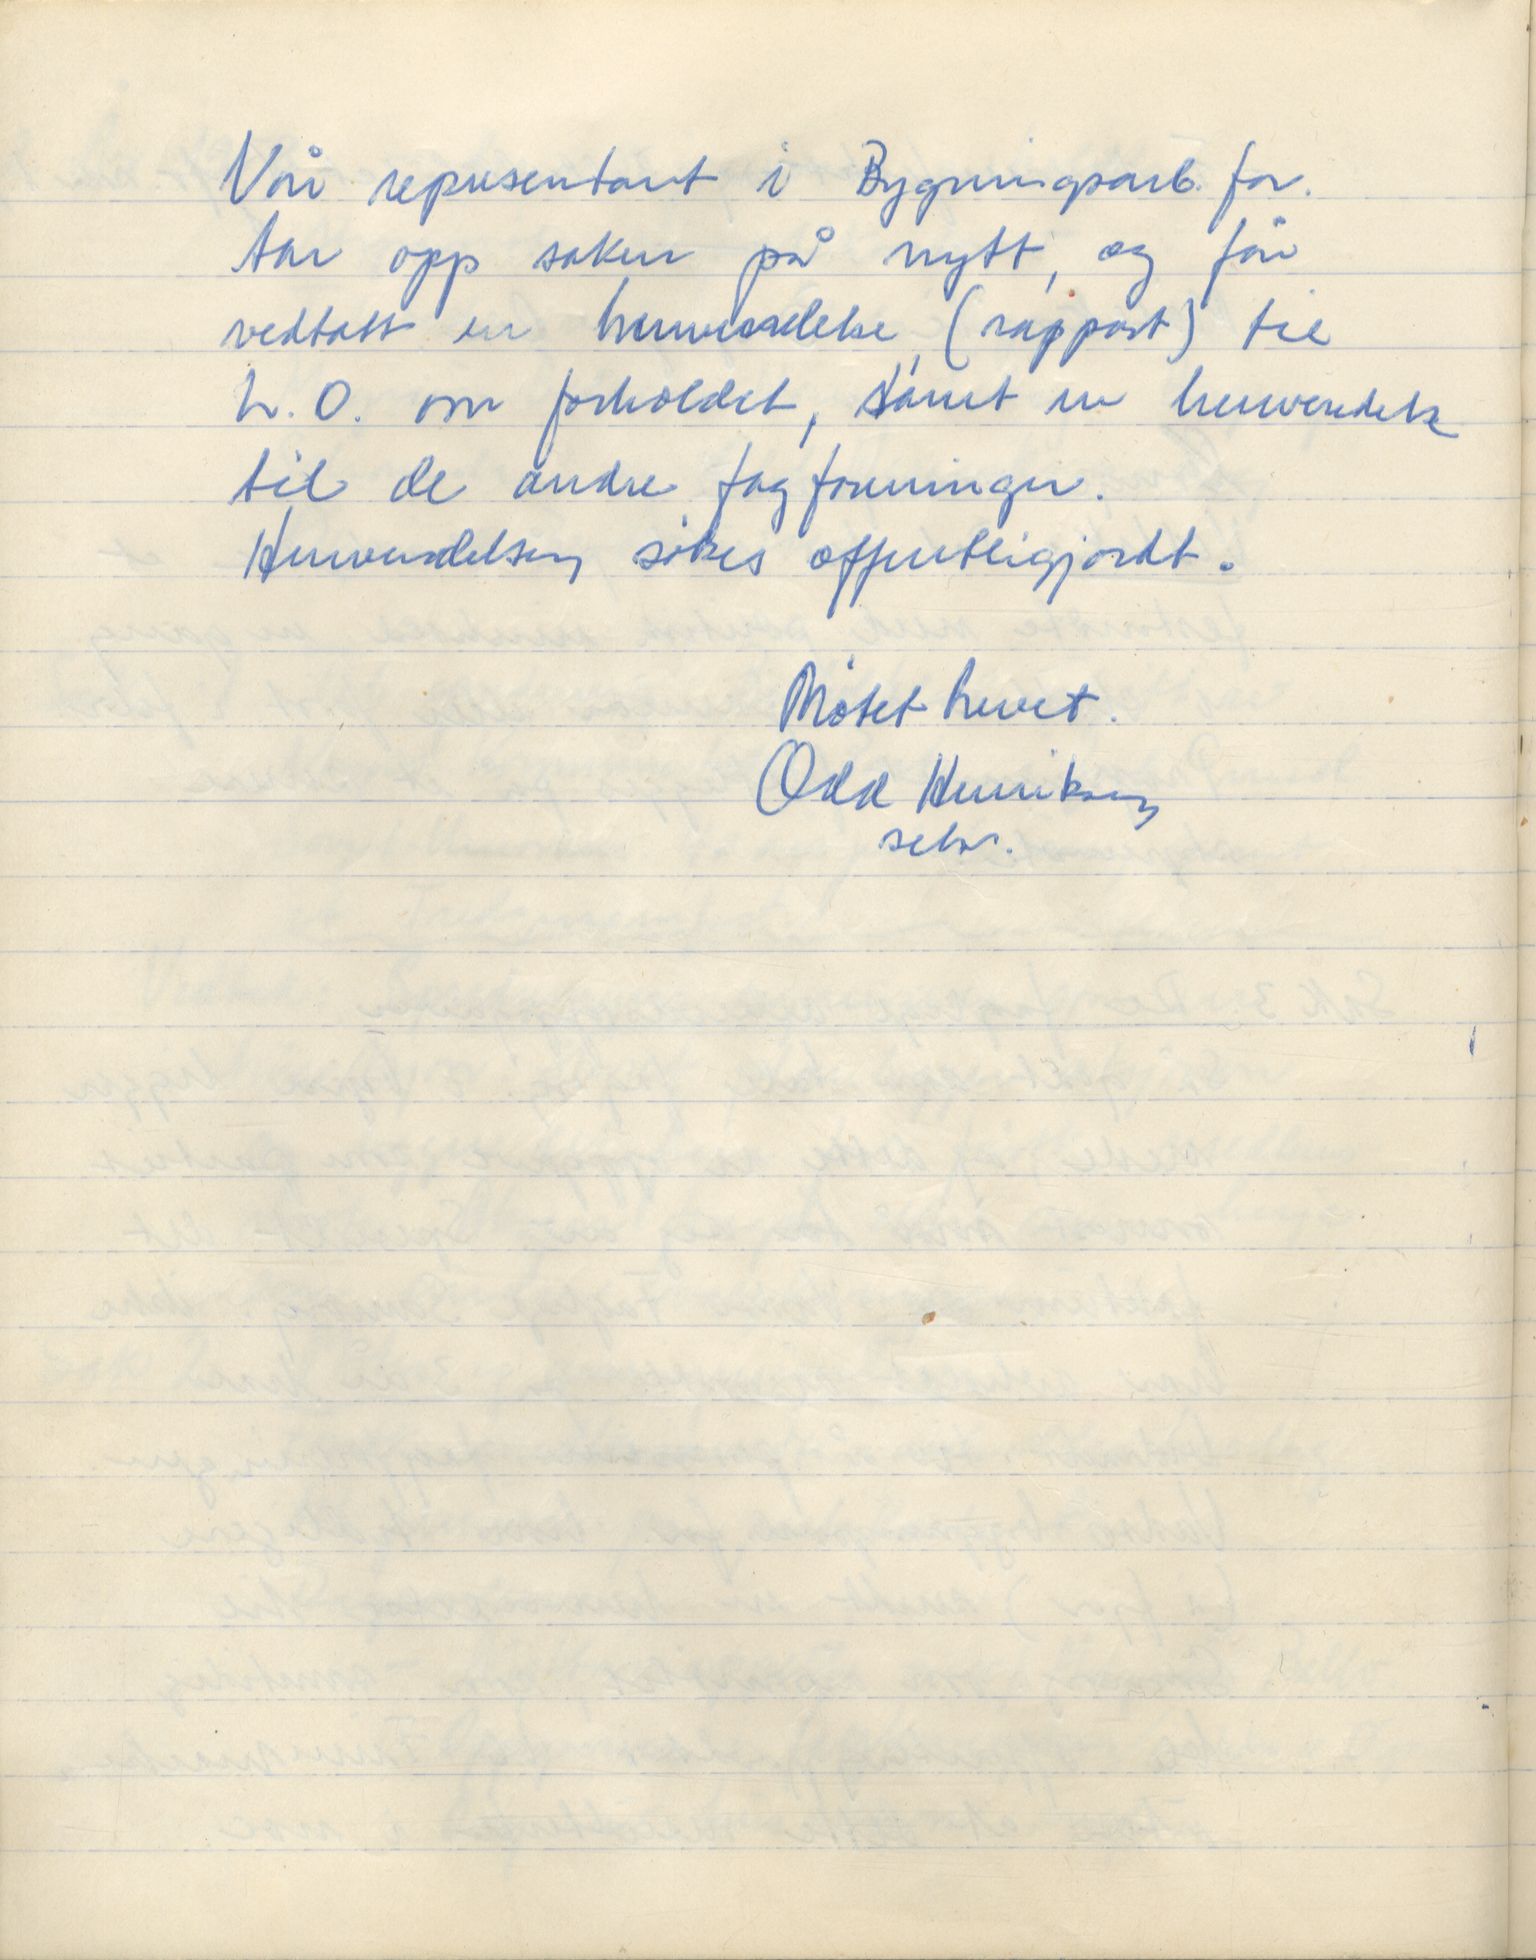 Vår representant i Bygningsarb. for.
tar opp saken på nytt, og får
vedtatt en henvendelse (rapport) til
L.O. om forholdet, samt en henvendelse
til de andre fagforeninger.
Henvendelsen søkes offentliggjordt.
Møtet hevet.
Odd Henriksen
sekr.